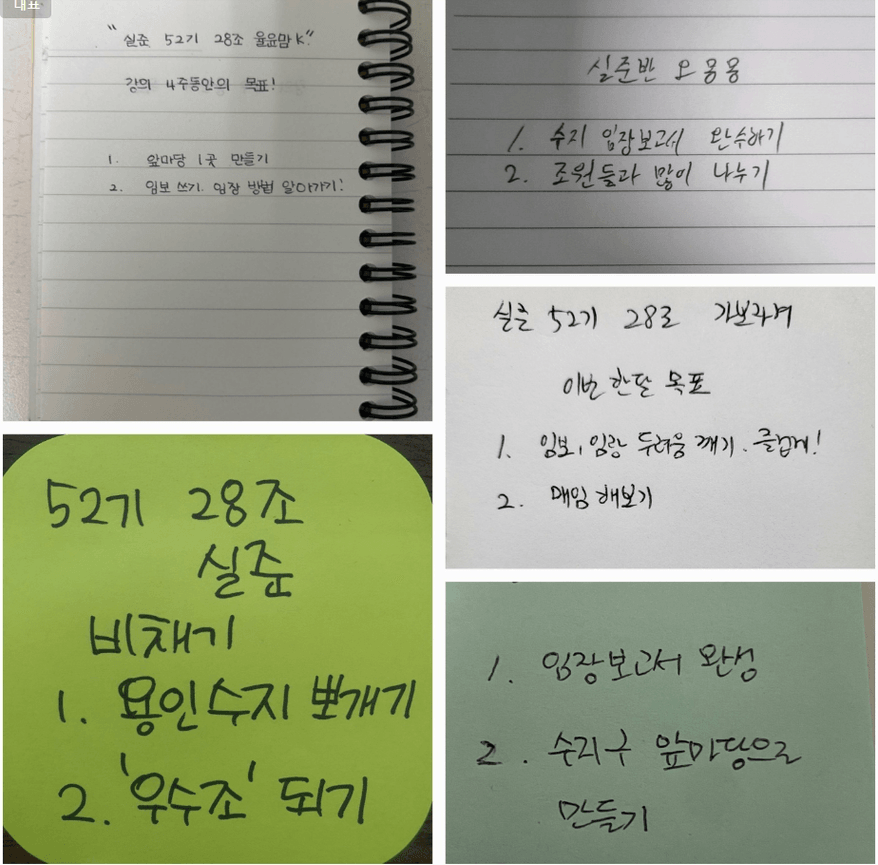 대표
"실준 52기 28조 율윤맘K"
강의 4주동안의 목표!
1. 앞마당 1곳 만들기
2. 임보 쓰기. 임장 방법 알아가기!
실준반 오용용
1. 수지 임장보고서 완수하기
2. 조원들과 많이 나누기
실준 52기 28조 가보라며
이번 한달 목표
1. 임보, 임장 두려움 깨기. 즐겁게!
2. 매임 해보기
52기 28조
실준
비채기
1. 용인수지 뽀개기
2. '우수조' 되기
1. 임장보고서 완성
2. 수지구 앞마당으로
만들기